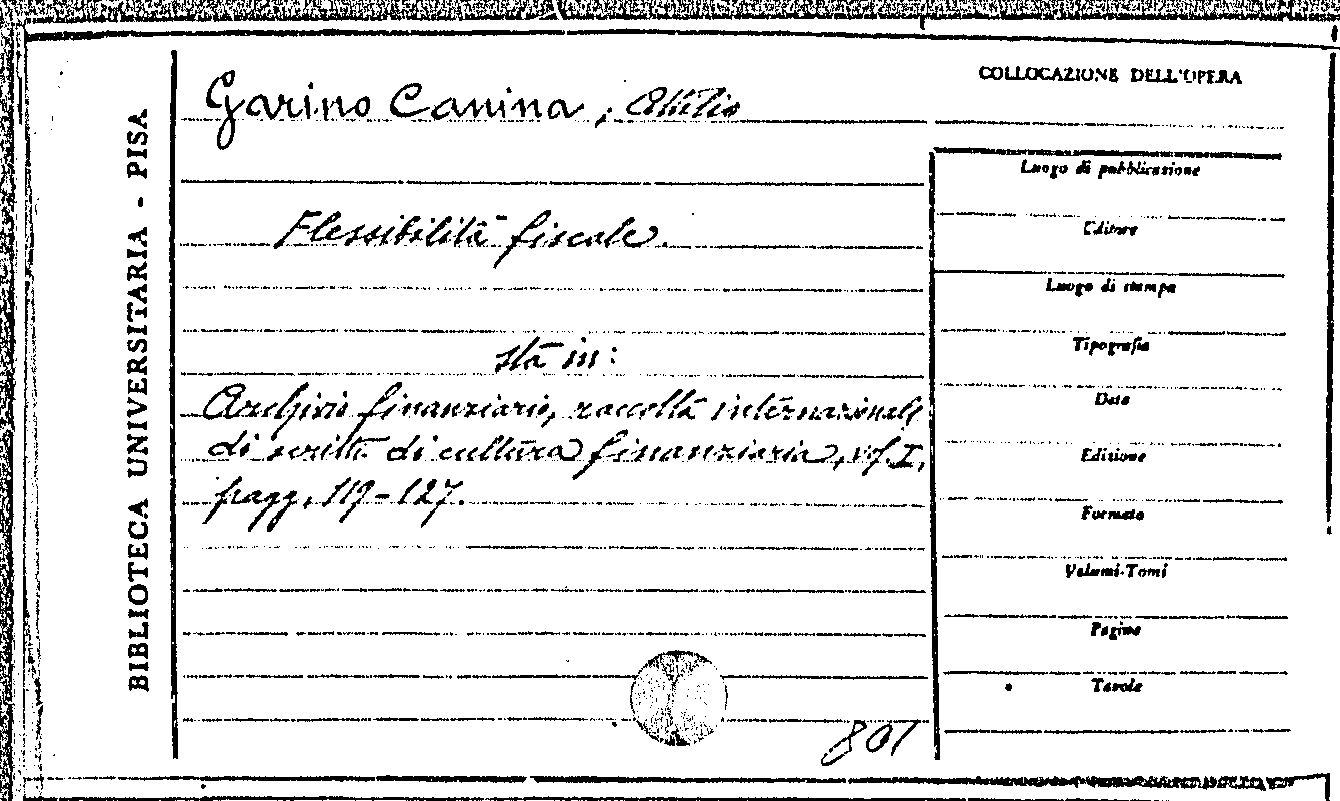 BIBLIOTECA UNIVERSITARIA - PISA
Garino Canina, Attilio
Flessibilità fiscale.
sta in:
Archivio finanziario, raccolta internazionale
di scritti di cultura finanziaria, vol. I,
pagg. 119-127.
801
COLLOCAZIONE DELL'OPERA
Luogo di pubblicazione
Editore
Luogo di stampa
Tipografia
Data
Edizione
Formato
Volumi-Tomi
Pagine
Tavole